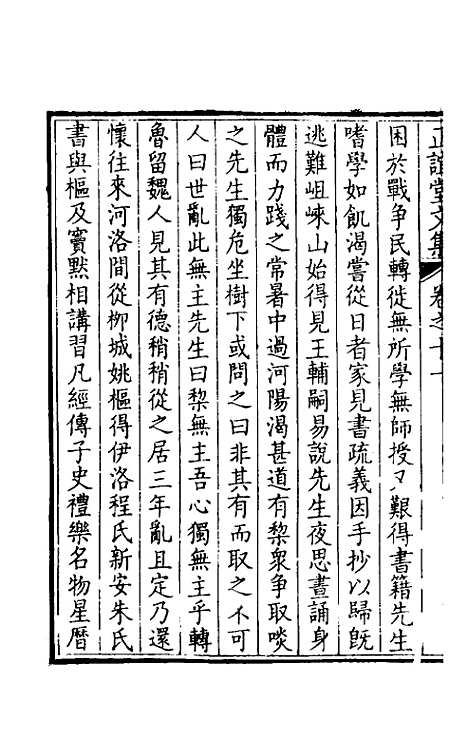 正誼堂文集　卷之十一
困於戰争民轉徙無所學無師授又艱得書籍先生
嗜學如飢渴嘗從日者家見書疏義因手抄以歸旣
逃難岨崍山始得見王輔嗣易說先生夜思晝誦身
體而力踐之常暑中過河陽渴甚道有棃衆争取啖
之先生獨危坐樹下或問之曰非其有而取之不可
人曰世亂此無主先生曰棃無主吾心獨無主乎轉
魯留魏人見其有德稍稍從之居三年亂且定乃還
懷往來河洛間從柳城姚樞得伊洛程氏新安朱氏
書與樞及竇默相講習凡經傳子史禮樂名物星曆